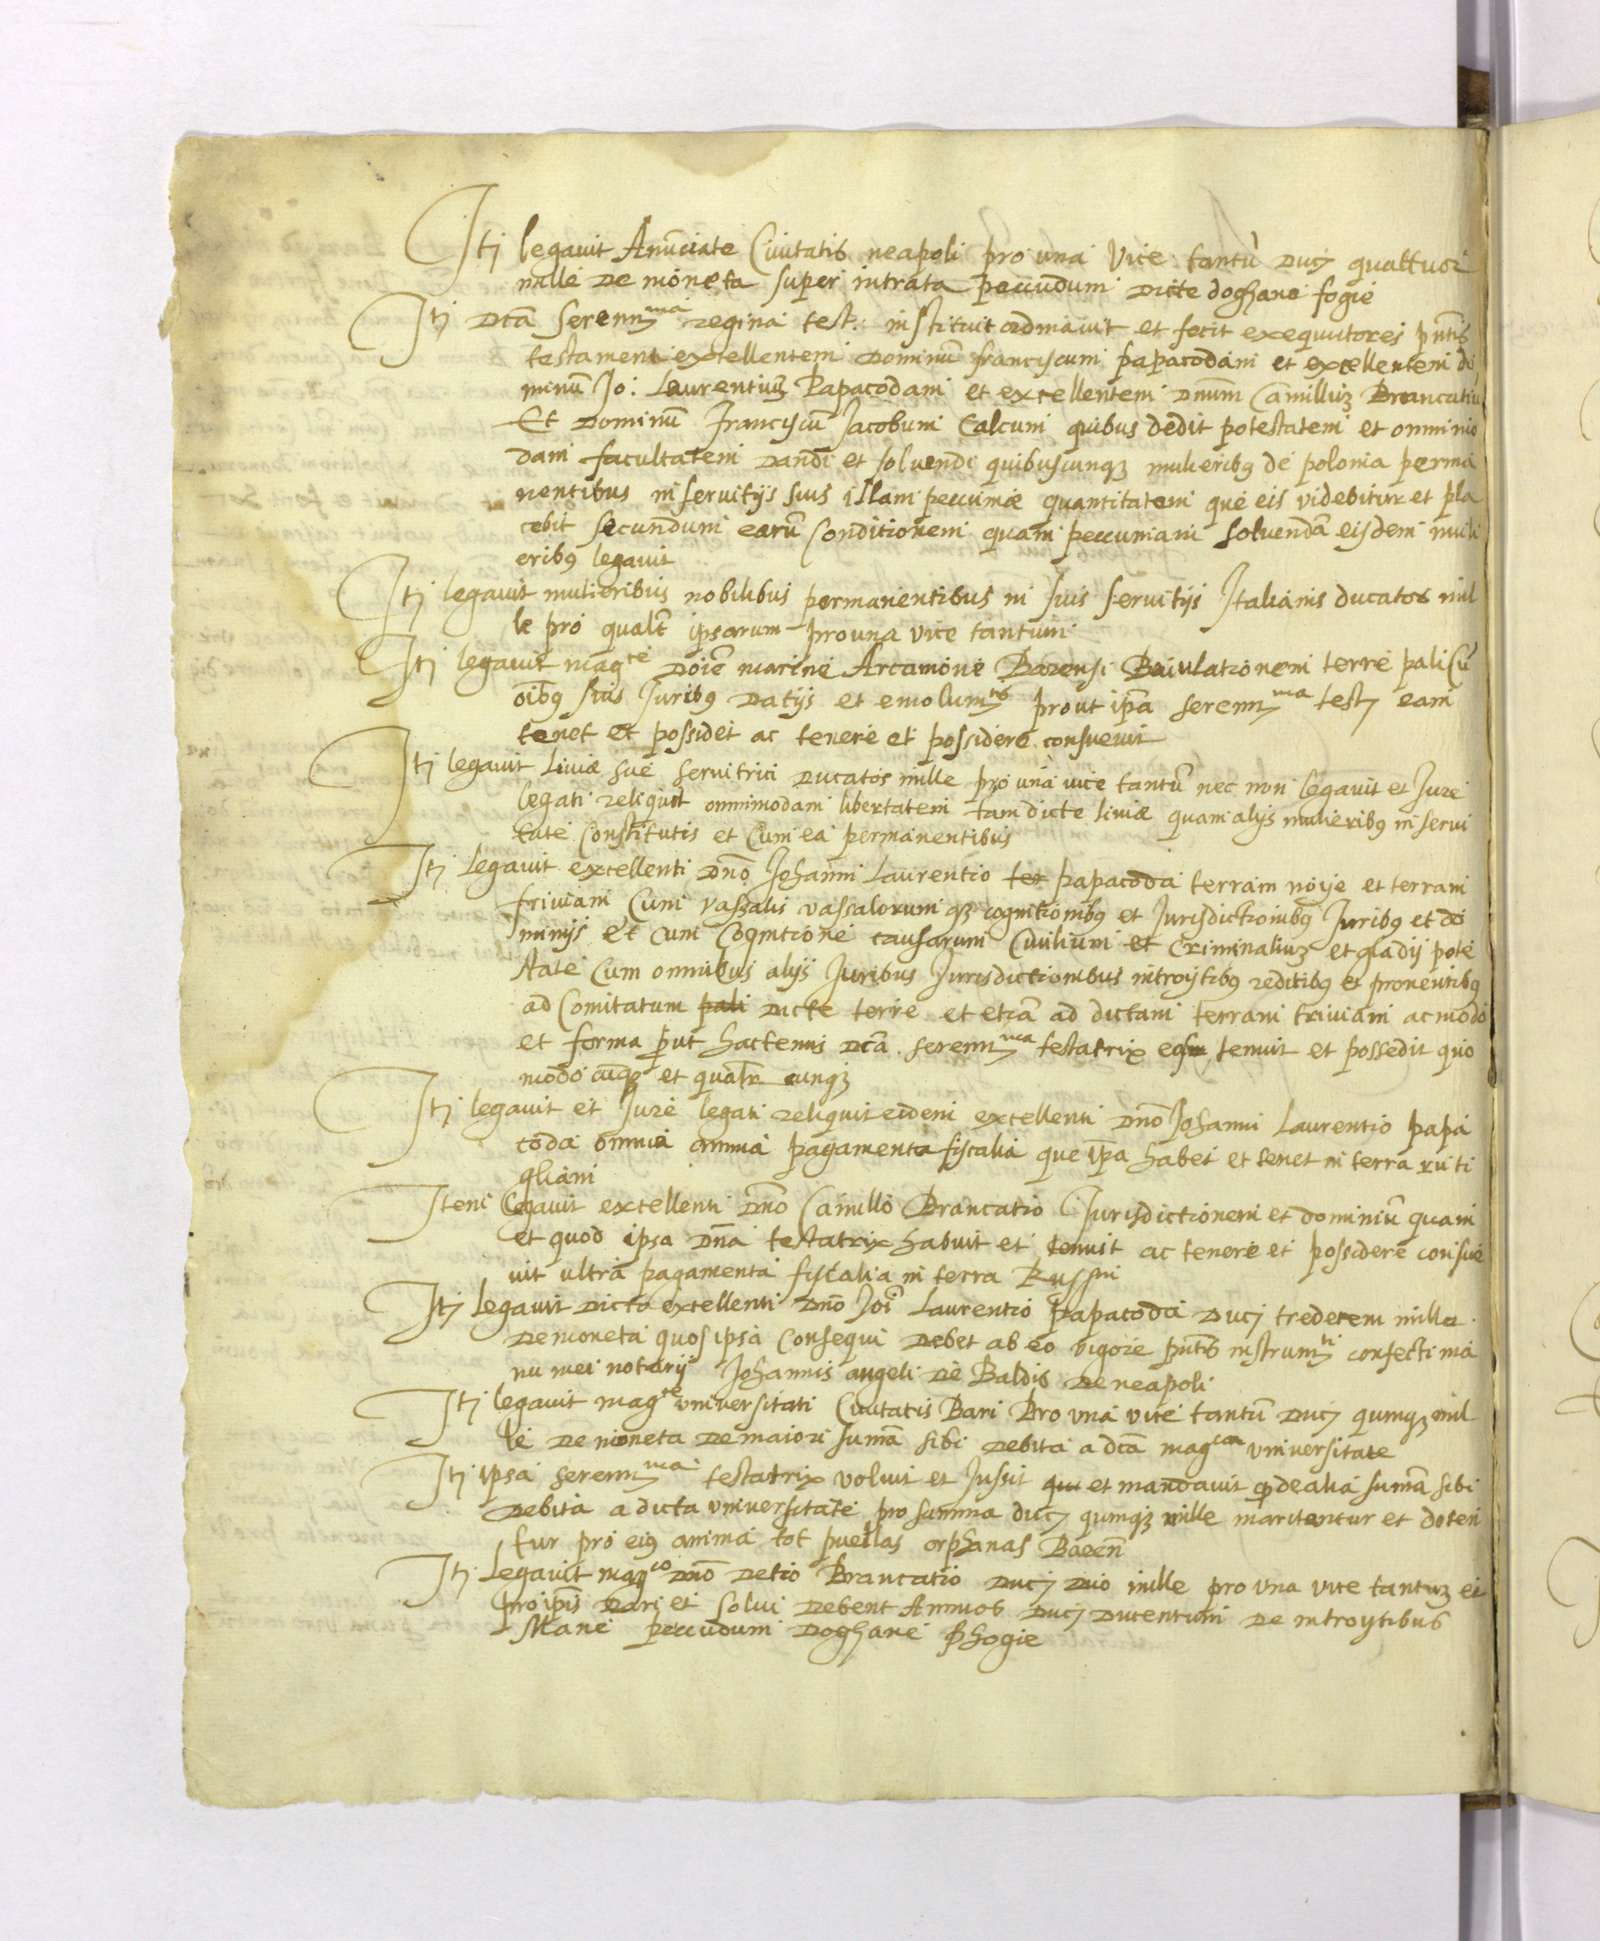 Itj legavit Anũciate Civitatis neapoli pro una vice tantũ ducj quattuor
mille de moneta super intrata pecudum dicte doghane fogie
Itj dtã serenma regina test. instituit ordinavit et fecit exequutores pñtis
testamenti excellentem dominũ franciscum papacodam et excellentem do
minũ Jo: Laurentiuʒ Papacodam et excellentem dnũm Camilluʒ Brancatiu
Et dominũ Franciscũ Jacobum Calcum quibus dedit potestatem et omnimo
dam facultatem dandi et solvendi quibuscunqʒ mulieribꝰ de polonia perma
nentibus in servitijs suis illam peccuniæ quantitatem que eis videbitur et pla
cebit secundum earũ Conditionem quam peccuniam solvendã eisdem muli
eribꝰ legavit
Itj legavit mulieribus nobilibus permanentibus in suis servitijs Italianis ducatos mil
le pro qualt ipsarum pro una vice tantum
Itj legavit magce doie marine Arcamone Barensi Baiulationem terre pali Cũ
oibꝰ suis Juribꝰ datijs et emolumtis prout ipã serenma testj eam
tenet et possidet ac tenere et possidere consuevit
Itj legavit Liviæ sue servitrici ducatos mille pro una vice tantũ nec non legavit et Jure
legati reliquit omnimodam libertatem tam dicte liviæ quam alijs mulieribꝰ in servi
tute Constitutis et Cum ea permanentibus
Itj Legavit excellenti dño Johanni Laurentio ter papacoda terram noije et terram
triviani Cum vassalis vassalorum qʒ cognitionibꝰ et Jurisdictionibꝰ Juribꝰ et do
minijs et cum Cognitione causarum Civilium et Criminaliuʒ et gladij pote
state Cum omnibus alijs Juribus Jurisdictionibus introytibꝰ reditibꝰ et proventibꝰ
ad Comitatum pali dicte terre et etiã ad dictam terram triviani ac modo
et forma put hactenus dcã serenma testatrix eas tenuit et possedit quo
modo cũqʒ et qualr cunqʒ
Itj legavit et Jure legati reliquit eidem excellenti dño Johanni Laurentio papa
coda omnia omnia pagamenta fiscalia que ipã habet et tenet in terra ruti
gliani
Item legavit excellenti dño Camillo Brancatio Jurisdictionem et dominiũ quam
et quod ipsa dña testatrix habuit et tenuit ac tenere et possidere consue
vit ultra pagamenta fiscalia in terra
Itj legavit dicto excellenti dño Joi Laurentio papacoda ducj tredecem mille
de moneta quos ipsa consequi debet ab eo vigore pñtis instrumti confecti ma
nu mei notarij Johannis angeli de Baldis de neapoli
Itj legavit magce universitati Civitatis Bari Pro una vice tantũ ducj qumqʒ mil
le de moneta de maiori sumã sibi debita a dcã magca universitate
Itj ipsa serenma testatrix voluit et Jussit qui et mandavit qd de alia sumã sibi
debita a dicta universitate pro summa ducj qumqʒ mille maritentur et doten
tur pro eiꝰ anima tot puellas orphanas Bareñ
Itj Legavit magco dño Detio Brancatio ducj duo mille pro una vice tantuʒ et
pro ipis dari et solvi debent Annuos ducj ducentum de introytibus
Mane peccudum Doghane Phogie